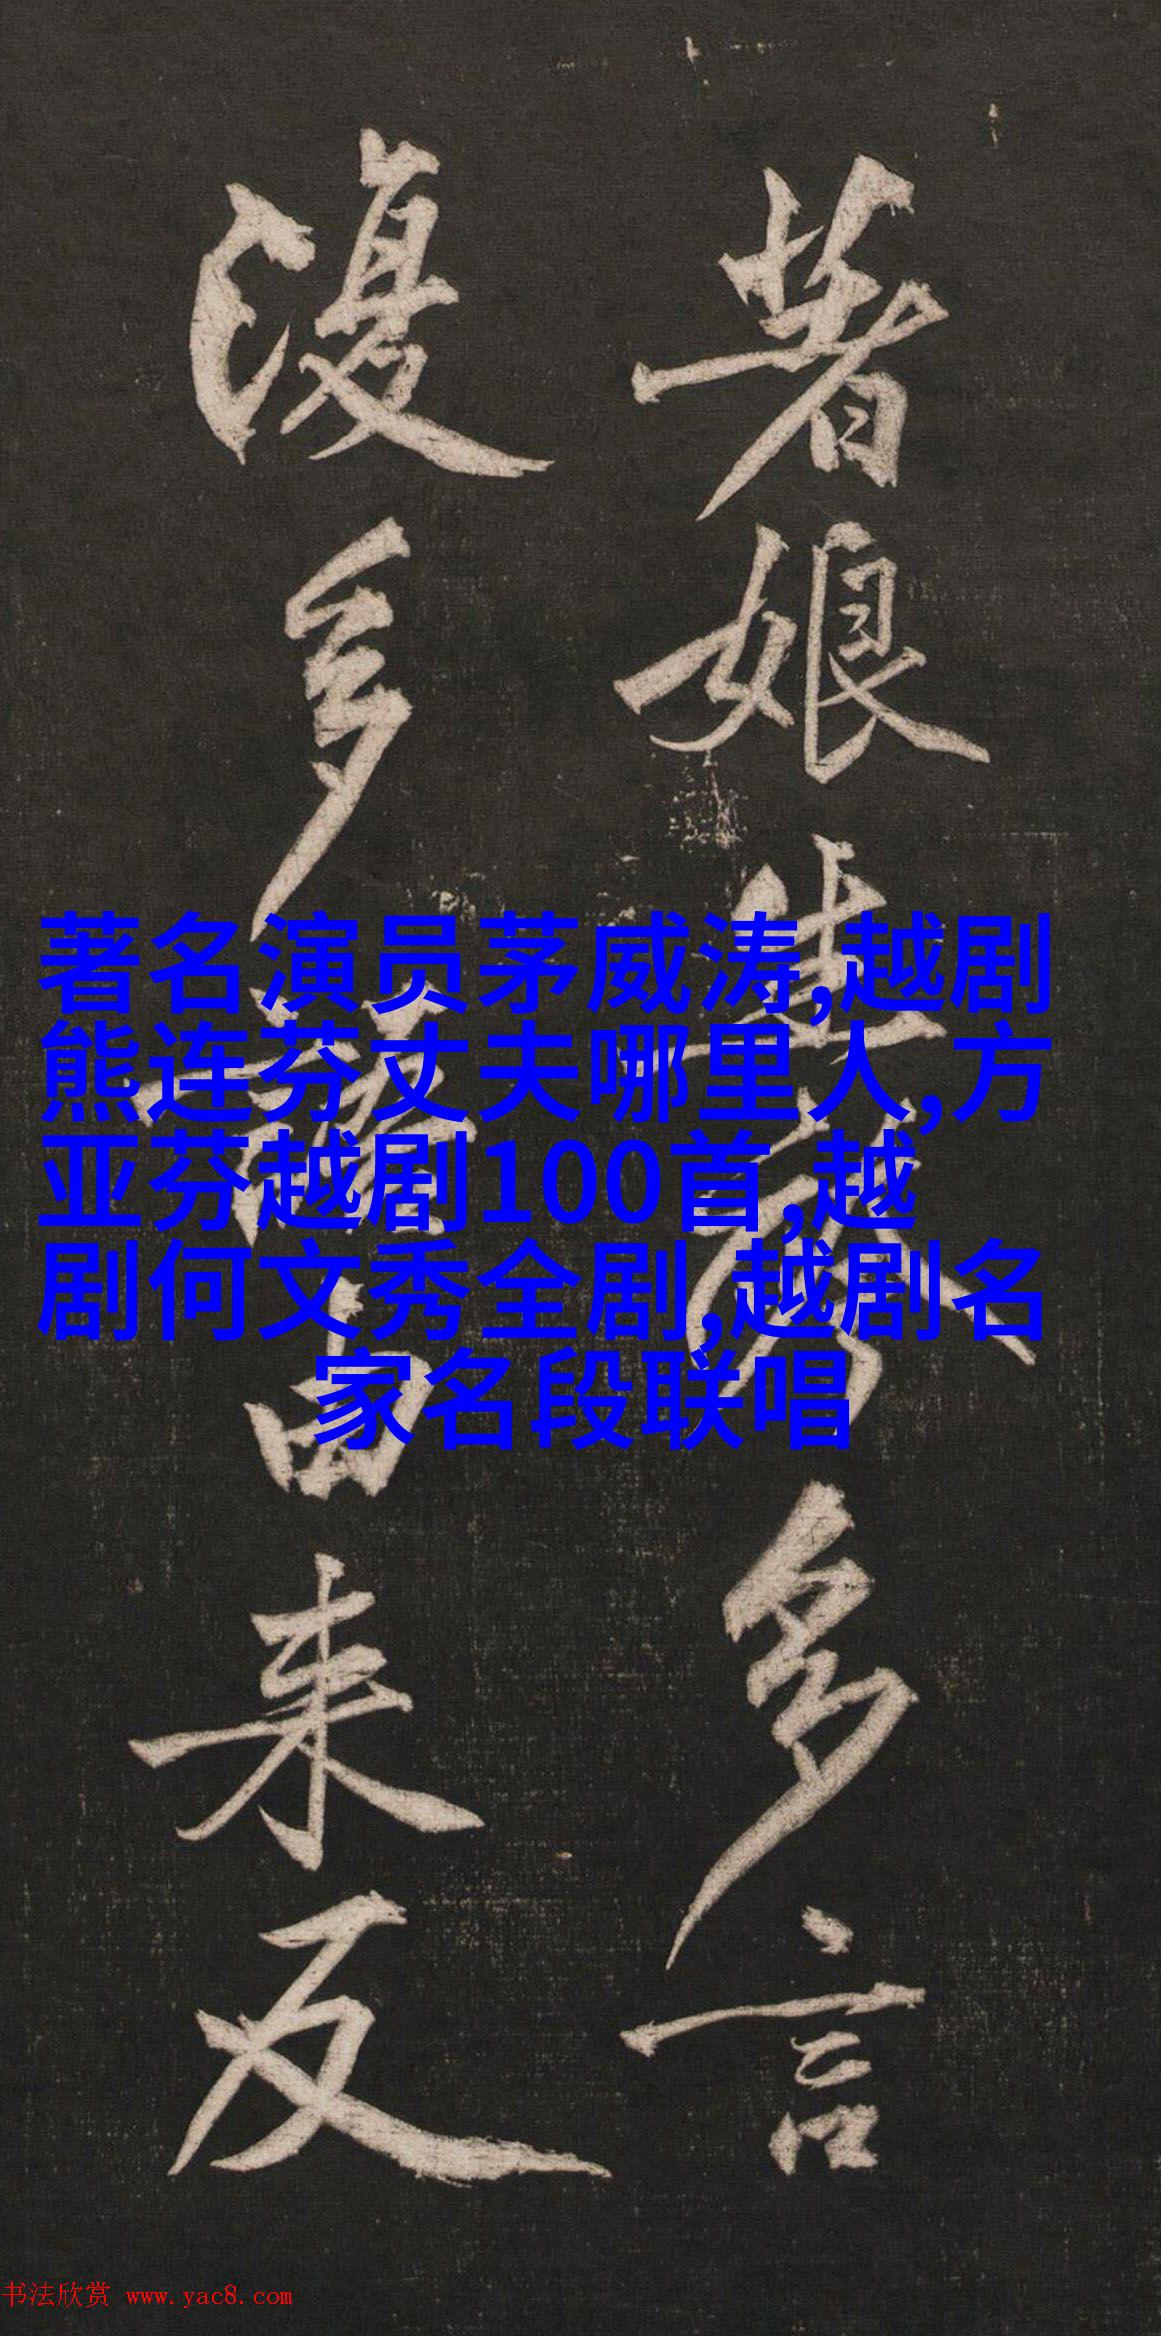 娘
多言
復多
由来反
著名演员茅威涛,越剧
熊连芬丈夫哪里人,方
亚芬越剧100首,越
剧何文秀全剧,越剧名
家名段联唱
书法欣赏 www.yac8.com